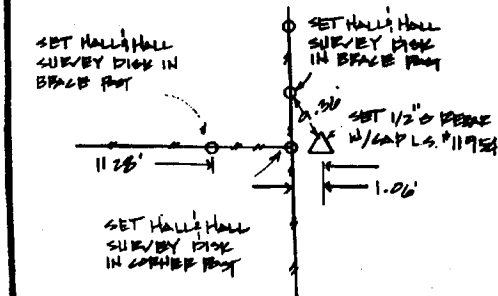 SET HALL & HALL
SURVEY DISK IN
BRACE POST
SET HALL & HALL
SURVEY DISK
IN BRACE POST
8.36'
SET 1/2" Ø REBAR
W/CAP L.S. #11954
11.28'
1.06'
SET HALL & HALL
SURVEY DISK
IN CORNER POST